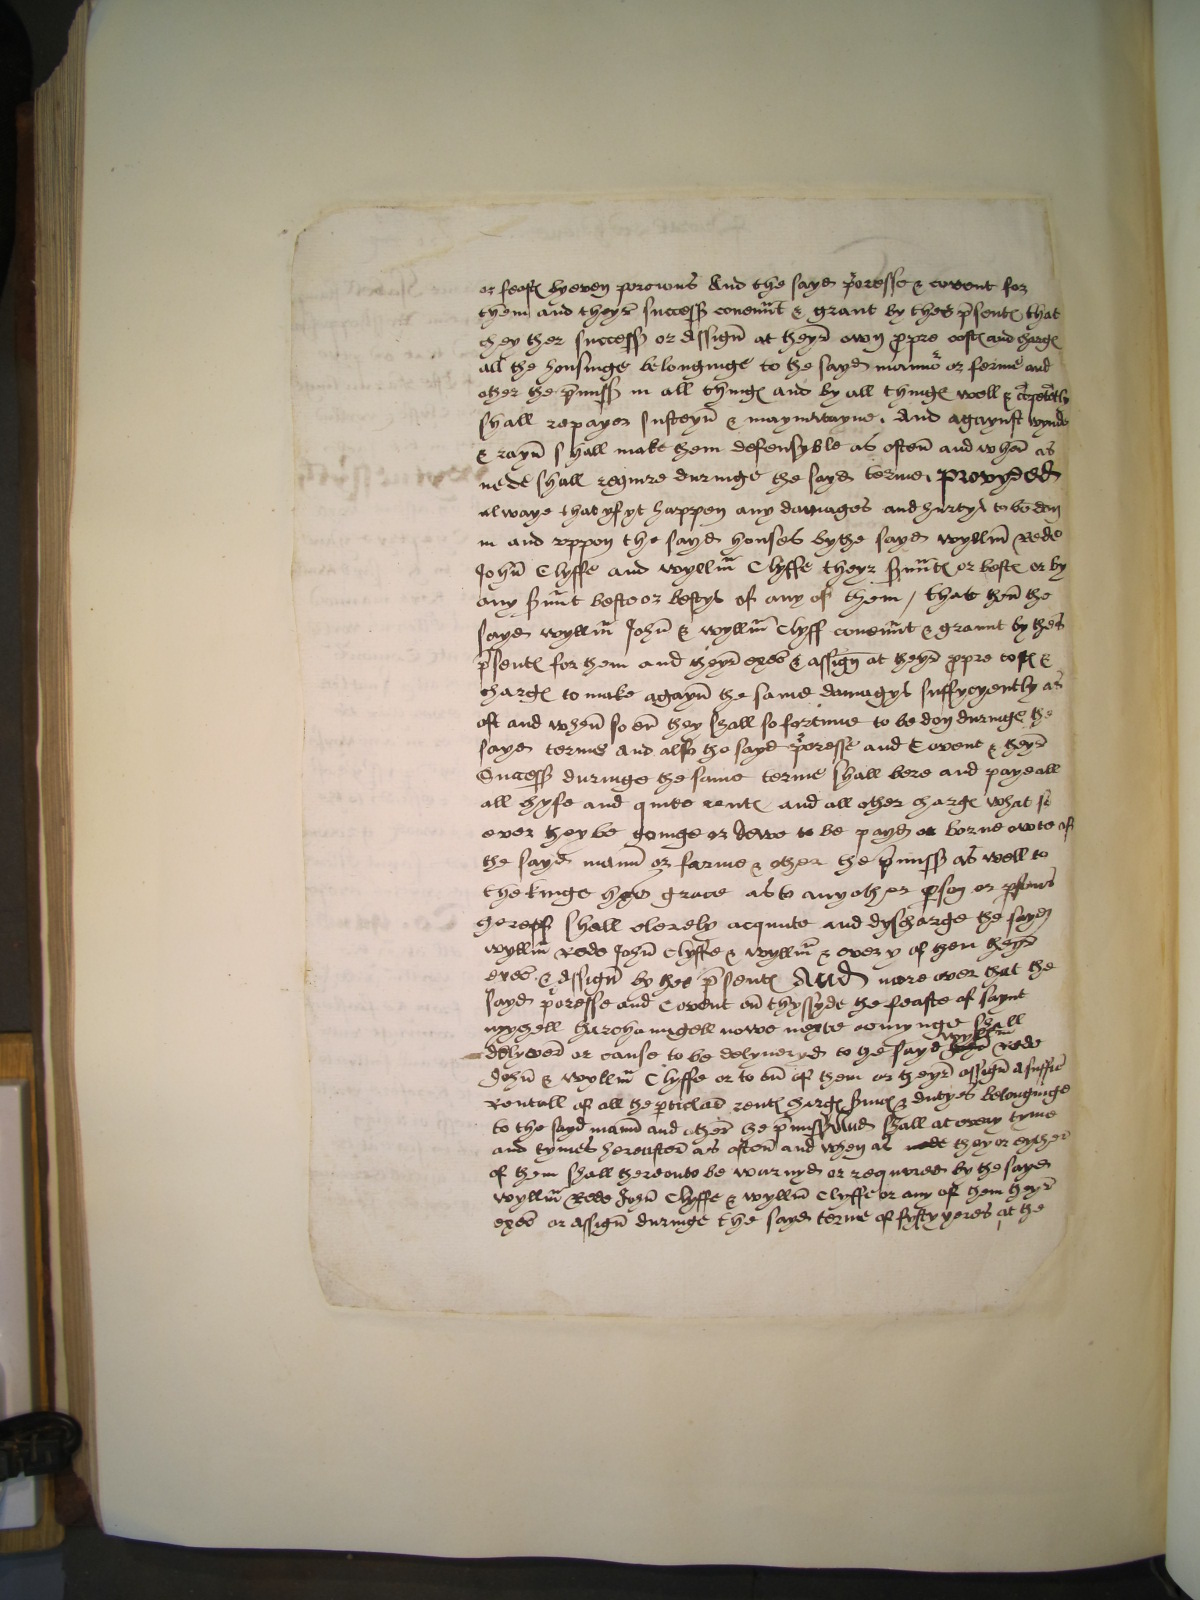 or feast by even porcions And the sayd p'oresse & covent for
them and theyr success covenut & grant by thes psentes that
they ther success or assign at theyr own ppre costes and charges
all the housinge belonginge to the sayd mannor or ferme and
other the pmiss in all thinges and by all thinges well & cõpetetly
shall repayer susteyn & mayntayne. And agaynst wynde
& rayn shall make them defensyble as often and when as
nede shall require duringe the sayd terme. Provyded
alwaye that yf yt happen any damages and hurtys to be don
in and uppon the sayd houses by the sayd wyllm Rede
John Clyffe and wyllm Clyffe theyr sruntes or bestes or by
any srunt beste or bestys of any of them / that then the
sayd wyllm John & wyllm Clyff covenut & graunt by thes
psentes for them and theyr exec & assign at theyr ppre costes &
charges to make agayn the same damagys suffycyently as
oft and when so ever they shall so fortune to be don duringe the
sayd terme And also the sayd p'oresse and Covent & theyr
Success duringe the same terme shall bere and paye all
all chyfe and quite rentes and all other charges what so
ever they be goinge or dewe to be payd or borne owte of
the sayd mann or farme & other the pmiss as well to
the kinge hys grace as to any other pson or psons
therof shall clerely acquite and dyscharge the sayd
wyllm Rede John Clyffe & wyllm & every of them theyr
exec & assign by thes psentes And more over that the
sayd p'oresse and Covent on thyssyde the feaste of saynt
mychell tharchangell nowe nexte comynge shall
delyver or cause to be delyveryd to the sayd wyllm Rede
John & wyllm Clyffe or to on of them or theyr assign a suffic
Rentall of all the pticlar rentes charges srvices & dutyes belonginge
to the sayd mann and other the pmiss And shall at every tyme
and tymes hereafter as often and when as they or eyther
of them shall thereunto be warnyd or requyred by the sayd
wyllm Rede John Clyffe & wyllm Clyffe or any of them theyr
exec or assign duringe the sayd terme of fyfty yeres at the